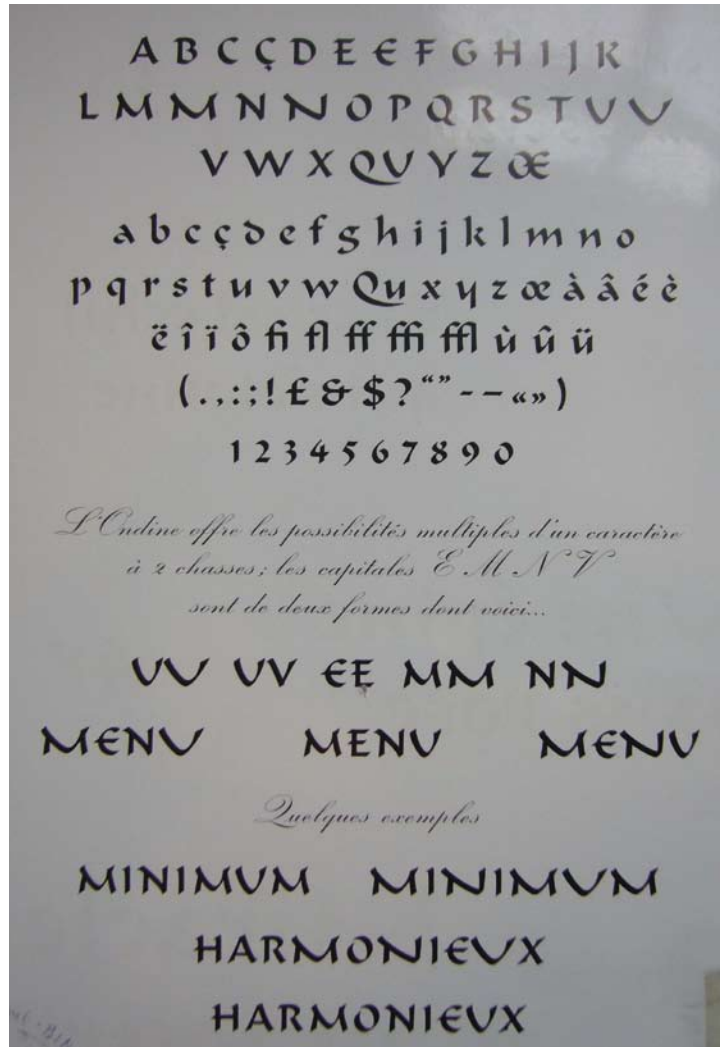 A B C Ç D E E F G H I J K
L M M N N O P Q R S T U U
V W X QU Y Z Œ
a b c ç d e f g h i j k l m n o
p q r s t u v w Qu x y z œ à â é è
ë î ï ô fi fl ff ffi ffl ù û ü
(.,:;!£&$?“”-–«»)
1234567890
L'Ondine offre les possibilités multiples d'un caractère
à 2 chasses; les capitales E M N V
sont de deux formes dont voici...
UU UV EE MM NN
MENU MENU MENU
Quelques exemples
MINIMUM MINIMUM
HARMONIEUX
HARMONIEUX